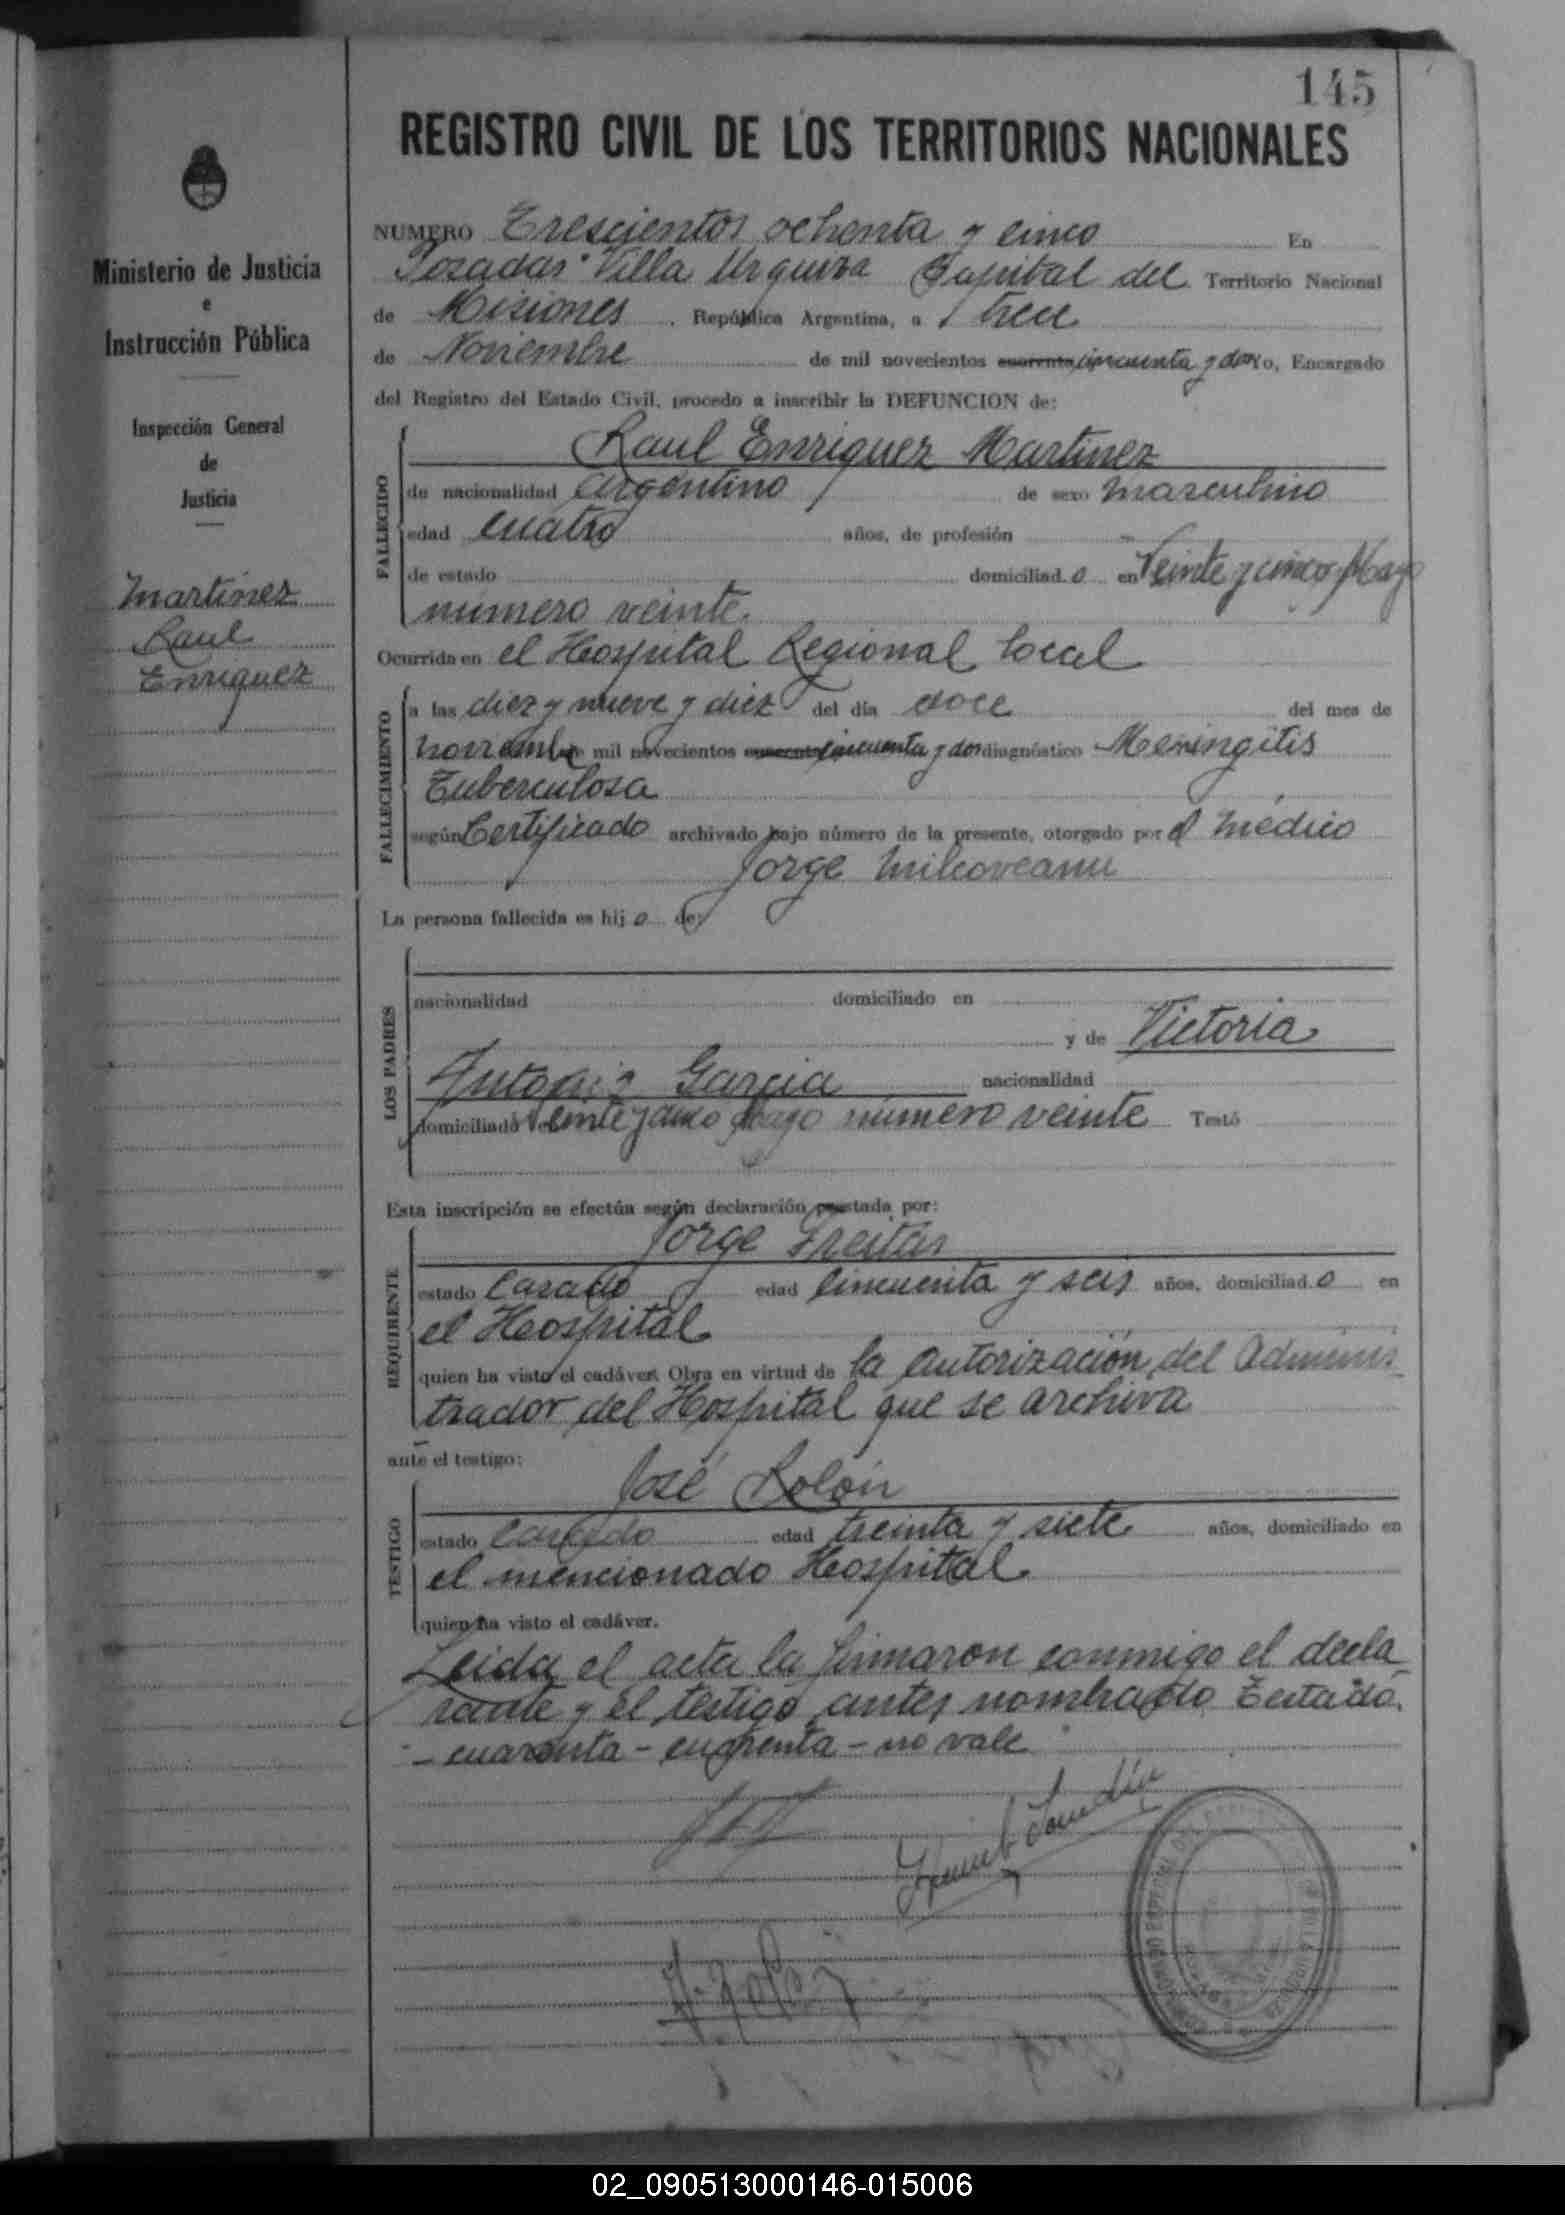 145
REGISTRO CIVIL DE LOS TERRITORIOS NACIONALES
Ministerio de Justicia
e
Instrucción Pública
Inspección General
de
Justicia
Martinez
Raul
Enriquez
NUMERO Trescientos ochenta y cinco En
Posadas Villa Urquiza Capital del Territorio Nacional
de Misiones, República Argentina, a trece
de Noviembre de mil novecientos cuarenta cincuenta y dos Yo, Encargado
del Registro del Estado Civil, procedo a inscribir la DEFUNCION de:
FALLECIDO
Raul Enriquez Martinez
de nacionalidad argentino de sexo masculino
edad cuatro años, de profesión
de estado domiciliad o en Veinte y cinco Mayo
número veinte.
Ocurrida en el Hospital Regional local
FALLECIMIENTO
a las diez y nueve y diez del día doce del mes de
noviembre de mil novecientos cuarenta cincuenta y dos diagnóstico Meningitis
Tuberculosa
según Certificado archivado bajo número de la presente, otorgado por el médico
Jorge Milcoveanu
La persona fallecida es hij o de:
LOS PADRES
nacionalidad domiciliado en
y de Victoria
Antonia Garcia nacionalidad
domiciliada Veinte y cinco Mayo número veinte Testó
Esta inscripción se efectúa según declaración prestada por:
REQUIRENTE
Jorge Freitas
estado Casado edad Cincuenta y seis años, domiciliad o en
el Hospital
quien ha visto el cadáver. Obra en virtud de la autorización del Adminis
trador del Hospital que se archiva
ante el testigo:
TESTIGO
José Rolón
estado Casado edad treinta y siete años, domiciliado en
el mencionado Hospital
quien ha visto el cadáver.
Leida el acta la firmaron conmigo el decla
rante y el testigo antes nombrado Testado.
"- cuarenta - cuarenta - no vale"
02_090513000146-015006